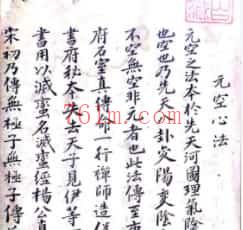 元空心法
元空之法本於先天河圖理氣陰
也空也乃先天卦爻陽変陰
不空無空非元者也此法傳至
府石室真傳命一行禪師造
書府秘本失去天子見伊等
書用以滅蠻名滅蠻經楊公真
宋初乃傳無極子無極子傳